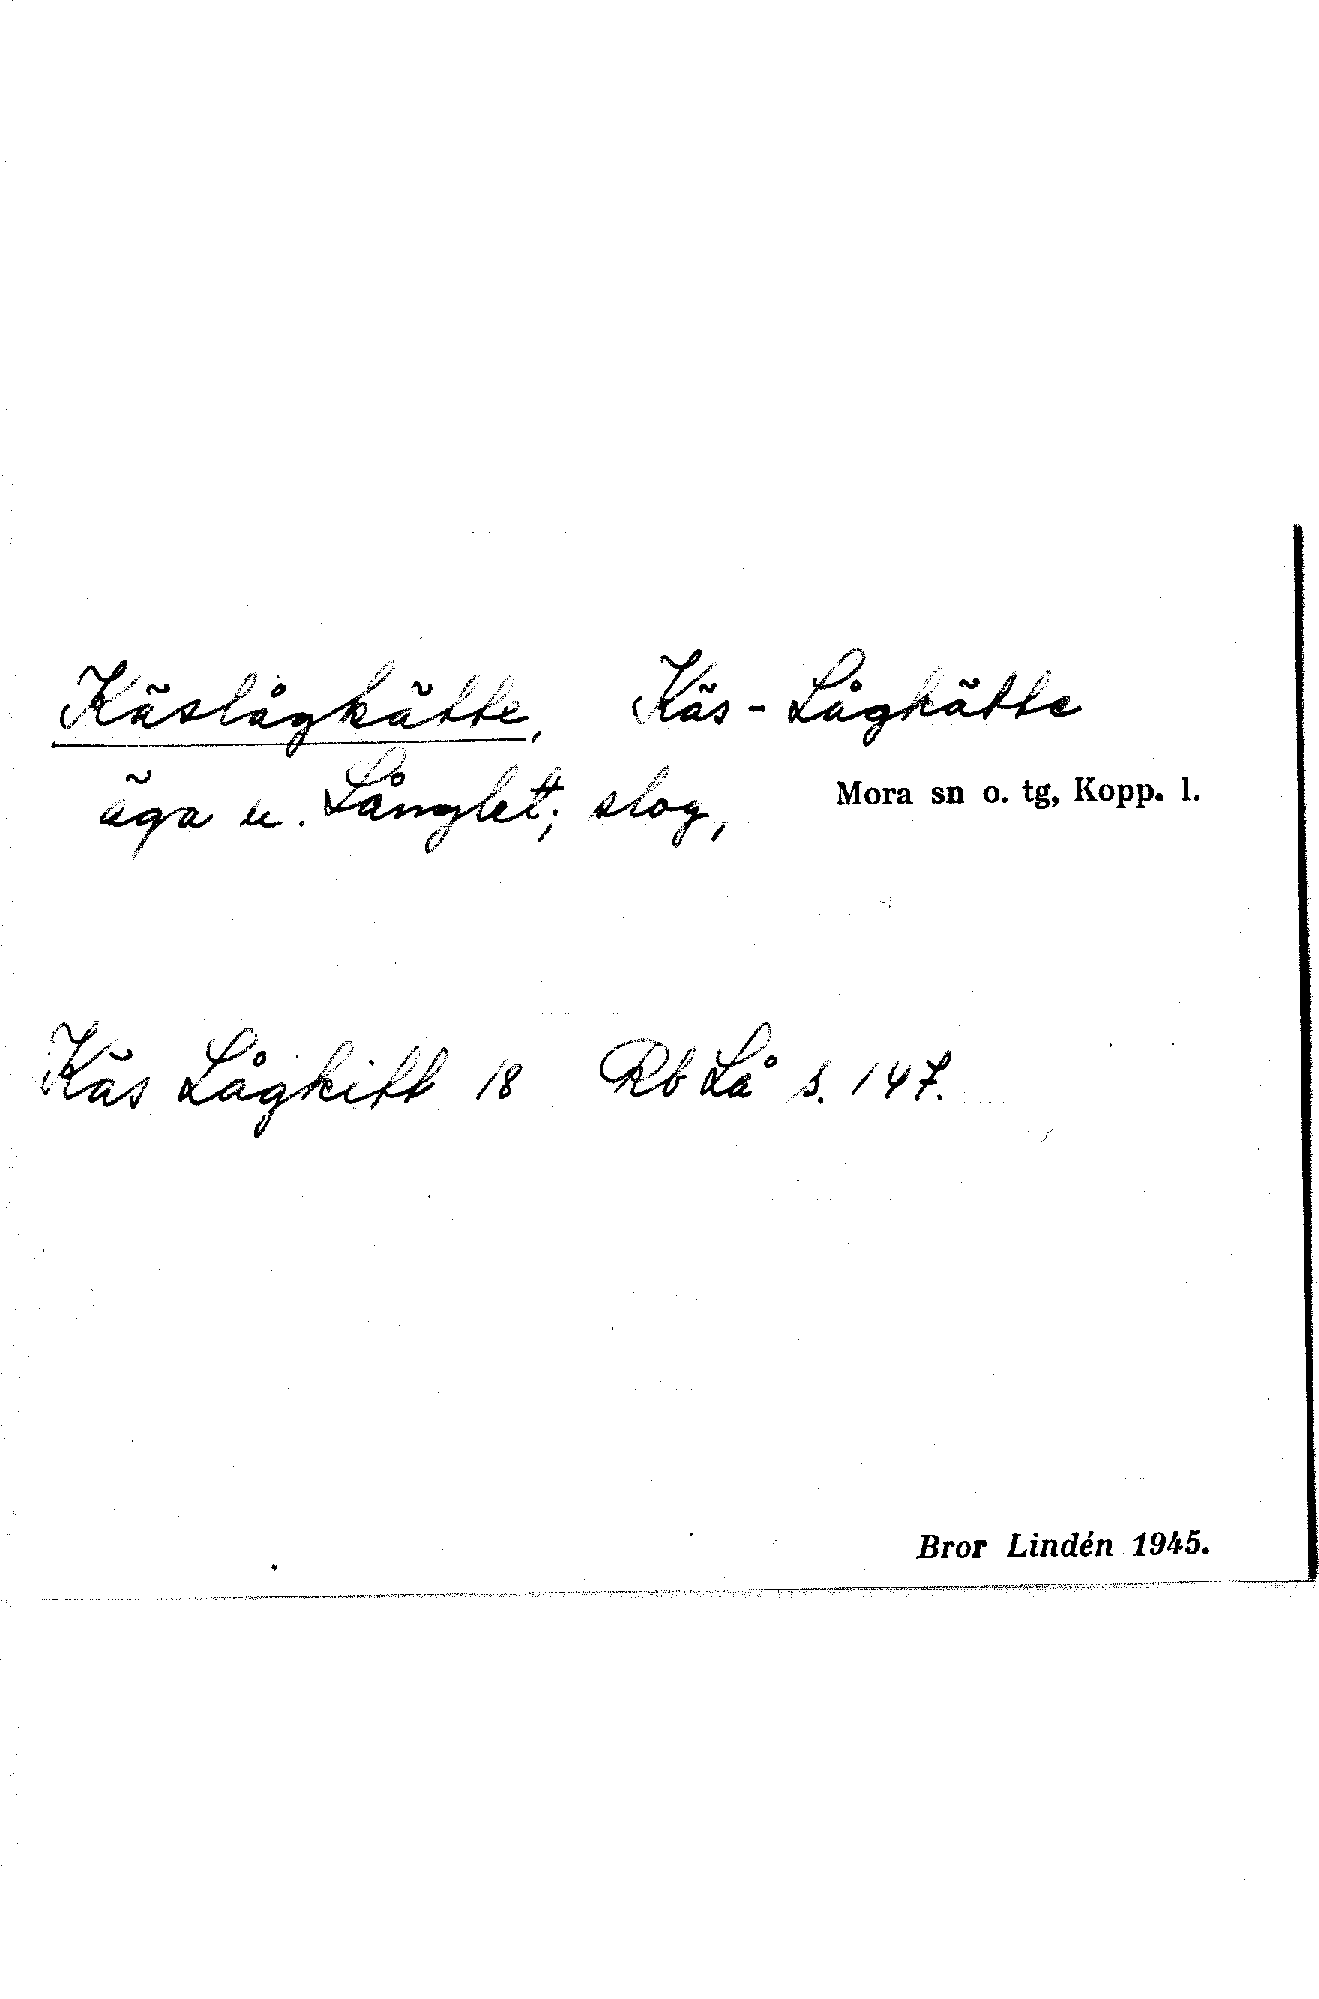 Käslågkätte, Käs-Lågkätte
äga u. Långlet; slog, Mora sn o. tg, Kopp. l.
Käs Lågkitt 18 Rb Lå s. 147.
Bror Lindén 1945.